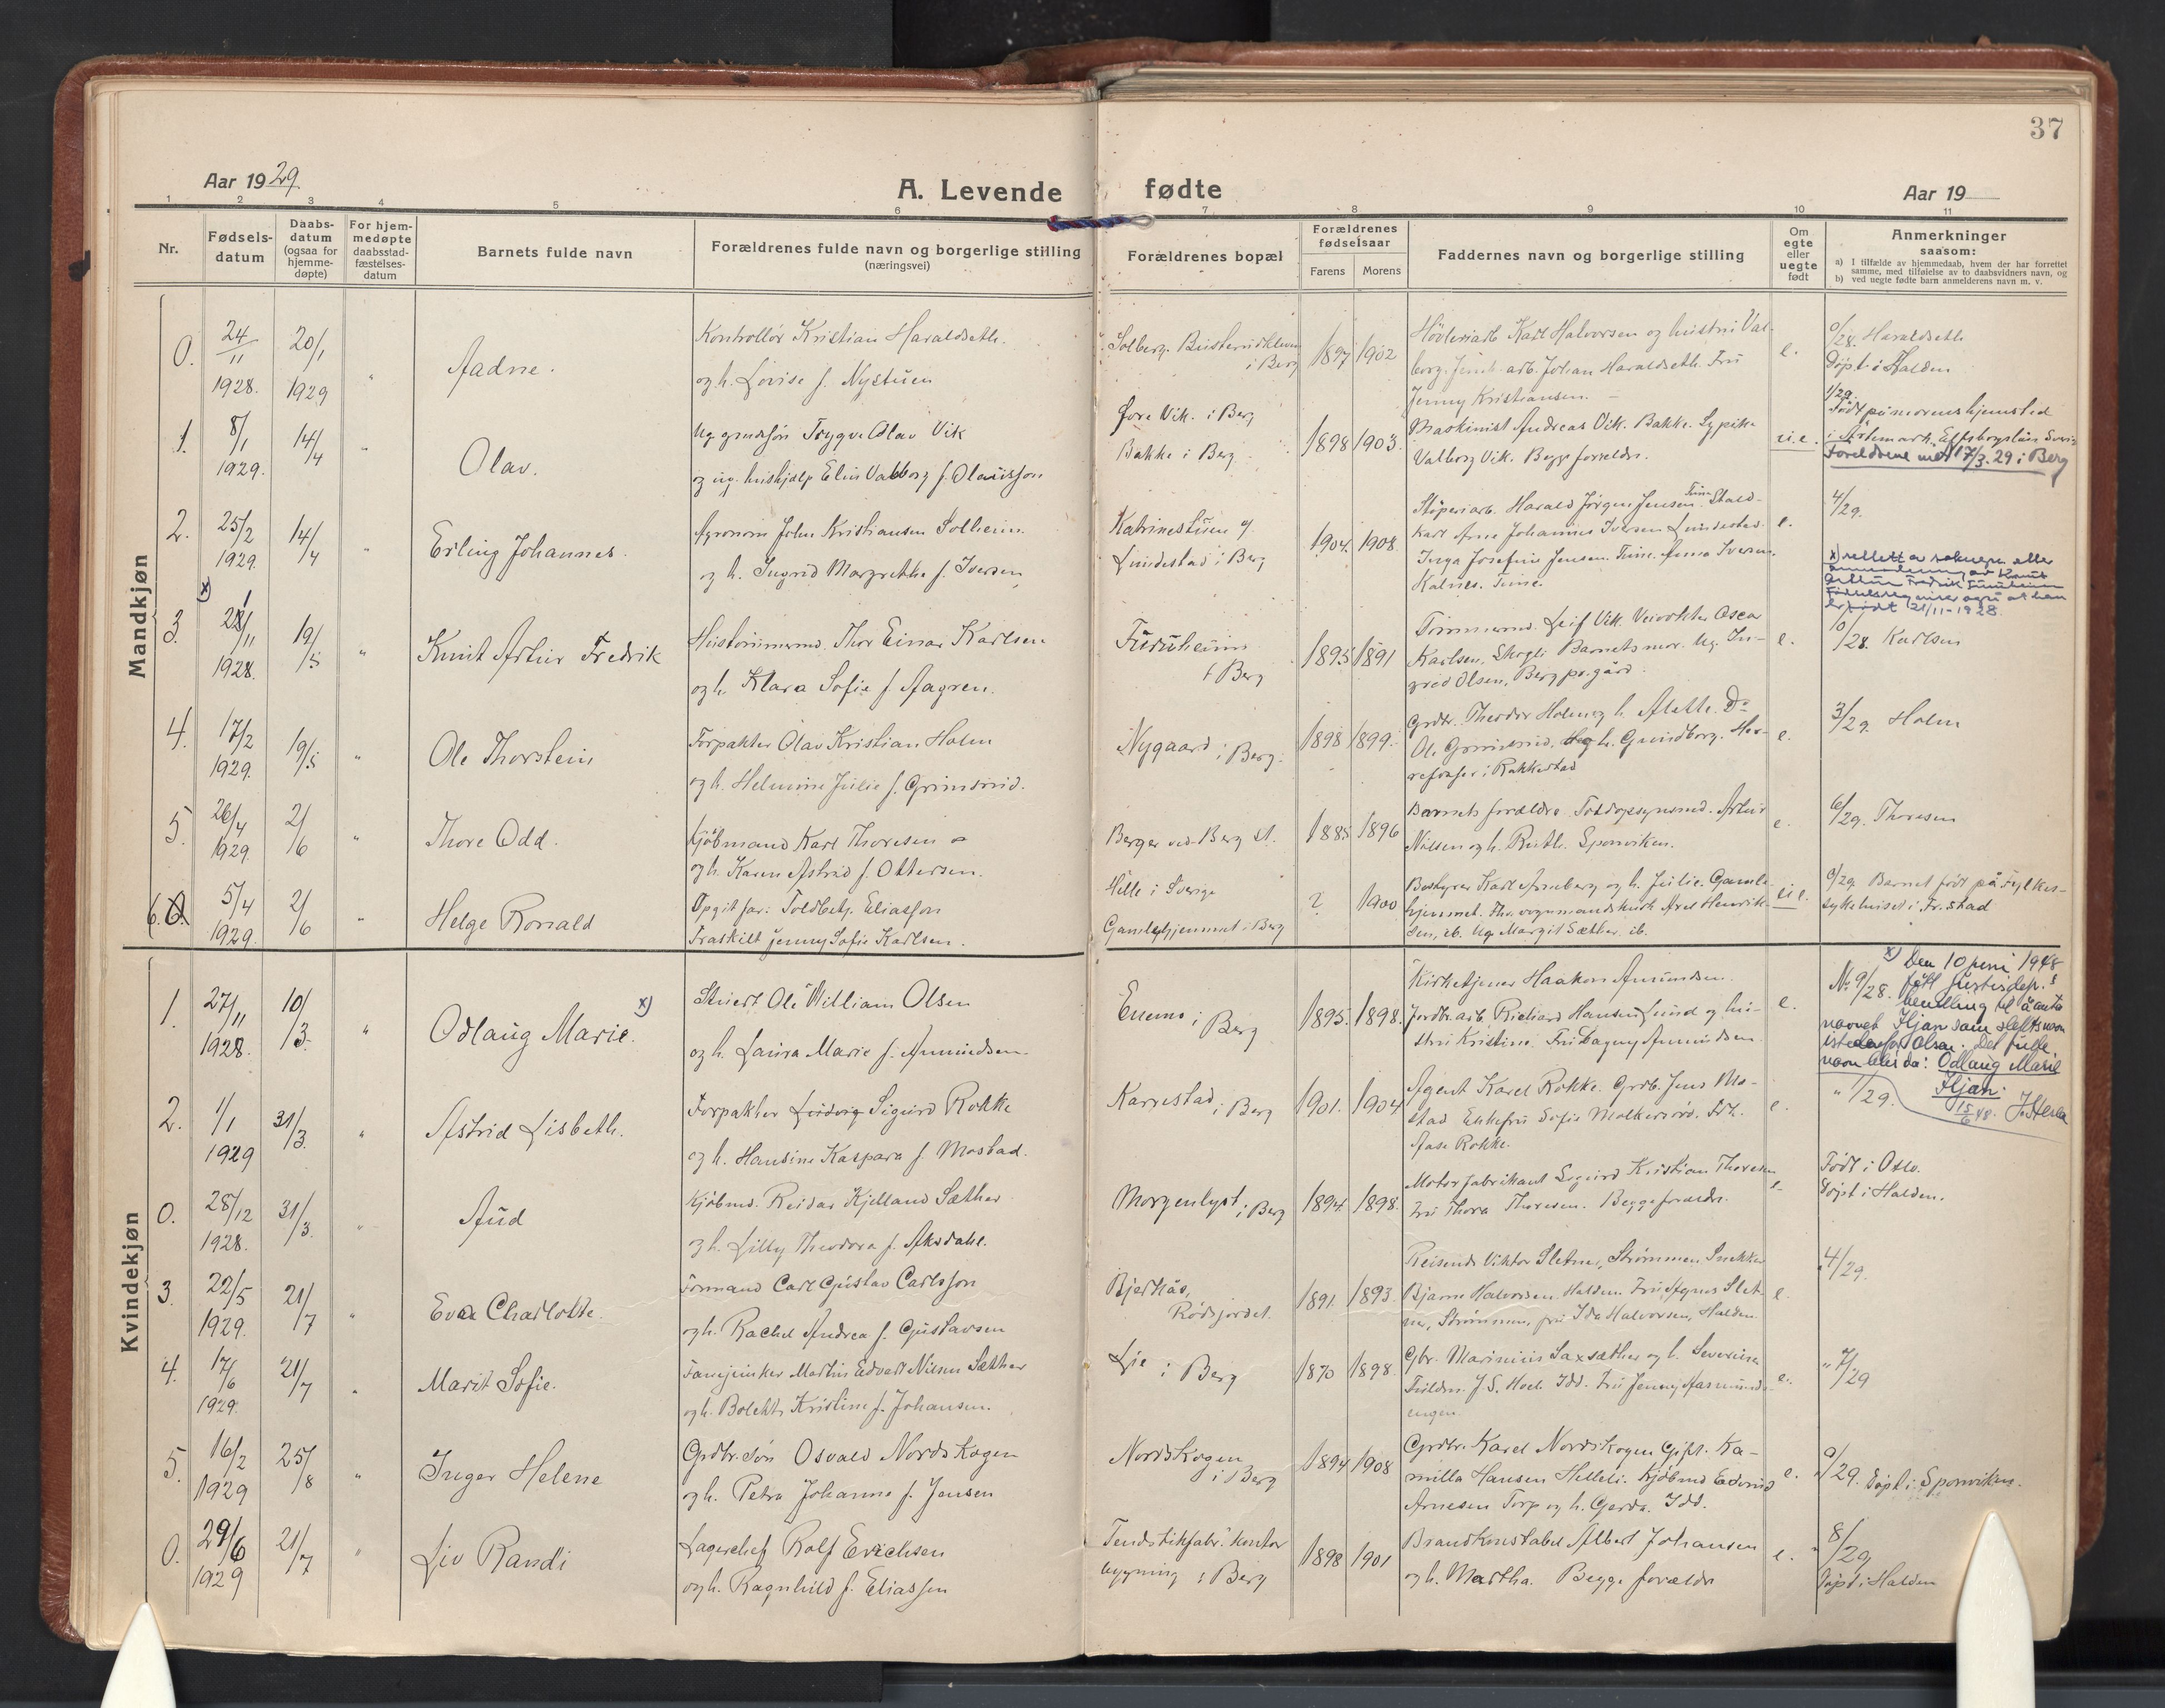 37
Aar 1929.
A. Levende fødte
Aar 19
1 2 3 4 5 6 7 8 9 10 11
Nr.
Fødsels-
datum
Daabs-
datum
(ogsaa for
hjemme-
døpte)
For hjem-
medøpte
daabsstad-
fæstelses-
datum
Barnets fulde navn
Forældrenes fulde navn og borgerlige stilling
(næringsvei)
Forældrenes bopæl
Forældrenes
fødselsaar
Farens Morens
Faddernes navn og borgerlige stilling
Om
egte
eller
uegte
født
Anmerkninger
saasom:
a) I tilfælde av hjemmedaab, hvem der har forrettet
samme, med tilføielse av to daabsvidners navn, og
b) ved uegte fødte barn anmelderens navn m. v.
Mandkjøn
0. 24/11 1928. 20/1 1929 " Aadne.
Kontrollør Kristian Haraldseth.
og h. Lovise f. Nystuen
Solberg. i Berg 1897 1902
Karl Halvorsen og hustru Val-
borg. arb. Johan Haraldseth. Fru
Jenny Kristiansen.
e.
9/28. Haraldseth
Døpt i Halden
1. 8/1 1929. 14/4 " Olav.
Ug. grndsøn Trygve Olav Vik
og ug. hushjælp Elin Valborg f. Olausson
Øvre Vik. i Berg
Bakke i Berg 1898 1903.
Maskinist Andreas Vik. Bakke.
Valborg Vik. Begge forældre.
u.e.
1/29.
Født på morens hjemsted
i Ärtemark. Elfsborgslän
Foreldrene viet 17/3. 29 i Berg
2. 25/2 1929. 14/4 " Erling Johannes.
Agronom John Kristiansen Solheim.
og h. Ingrid Margrethe f. Iversen
Katrinestuen
Lundestad i Berg 1904. 1908.
Støperiarb. Harald Jørgen Jensen. Tune.
Karl Arne Johannes Iversen Lundestad.
Inga Josefine Jensen. Tune. Anna Iversen.
Kalnes. Tune
e.
4/29.
3. x) 1928. 19/5 " Knut Artur Fredrik
Hustømmermd. Thor Einar Karlsen
og h. Klara Sofie f. Aagren.
Furuheim
i Berg 1895 1891
Tømmermd. Leif Vik. Oscar
Karlsen, Skogli. Barnets mor. Ug. In-
grid Olsen, Berg pr.gård.
e.
x) rettet av
Fredrik Furuheim
er født 21/11-1928.
10/28. Karlsen
4. 17/2 1929. 19/5 " Ole Thorstein
Forpakter Olav Kristian Holm
og h. Helmine Julie f. Grimsrud.
Nygaard i Berg. 1898 1899.
Grdbr. Theodor Holm og h. Alethe. Do
Ol. Grimsrud. og h. Gundborg.
i Rakkestad
e.
3/29. Holm
5. 26/4 1929. 2/6 " Thore Odd.
Kjøbmand Karl Thoresen
og h. Karen Astrid f. Ottersen.
Berger ved Berg st. 1885. 1896
Barnets forældre. Toldopsynsmd. Artur
Nilsen og h. Ruth. Sponviken.
e.
6/29. Thoresen
6. 5/4 1929. 2/6 " Helge Ronald
Opgit far: Toldbetj. Eliasson
Fraskilt Jenny Sofie Karlsen.
Hille i Sverige
Gamlehjemmet i Berg ? 1900
Bestyrer Karl Arneberg og h. Julie. Gamle-
hjemmet. Axel Henrik-
sen, ib. Ug. Margit Sæther. ib.
u.e.
Barnet født på Fylkes-
sykehuset i Fr.stad
Kvindekjøn
1. 27/11 1928. 10/3. " Odlaug Marie. x)
Stuert Ole William Olsen
og h. Laura Marie f. Amundsen.
Enemo i Berg 1895. 1898.
Kirketjener Haakon Amundsen.
Jordbr.arb. Richard Hansen Lund og hu-
stru Kristine. Fru Dagny Amundsen.
e.
x) Den 10 juni 1948
No 9/28. fått Justisdep.s
bevilling til å anta
navnet Hjan som slektsnavn
istedenfor Olsen. Det fulle
navn blir da: Odlaug Marie
Hjan.
15/6 48.
2. 1/1 1929 31/3. " Astrid Lisbeth.
Forpakter Ludvig Sigurd Rokke
og h. Hansine Kaspara f. Mostad.
Karrestad i Berg 1901. 1904
Agent Karel Rokke. Grdb. Jens Mo-
stad. Enkefru Sofie
Aase Rokke.
e.
" 1/29.
0. 28/12 1928. 31/3. " Aud
Kjøbmd. Reidar Kjelland Sæther
og h. Lilly Theodora f. Aksdahl.
Morgenlyst i Berg 1894. 1898.
Motorfabrikant Sigurd Kristian Thoresen
Fru Thora Thoresen. Begge forældre.
e.
Født i Oslo.
Døpt i Halden.
3. 22/5 1929. 21/7 " Eva Charlotte.
Formand Carl Gustav Carlsson
og h. Rachel Andrea f. Gustavsen
Bjerkås,
Rødsjordet. 1891. 1893
Reisende Viktor Sletner, Strømmen. Snekker
Bjarne Halvorsen. Halden. Fru Agnes Slet-
ner, Strømmen, fru Ida Halvorsen, Halden.
e.
4/29.
4. 17/6 1929. 21/7 " Marit Sofie.
Fanejunker Martin Edvard Nilsen Sæther
og h. Bolette Kristine f. Johansen.
Lie i Berg 1870 1898.
Gbr. Marinius Saxsæther og h. Severine
J. S. Idd. Fru Jenny Aasmunds-
engen
e.
" 7/29
5. 16/2 1929 25/8 " Inger Helene
Grdbr.søn Osvald Nordskogen
og h. Petra Johanne f. Jensen
Nordskogen
i Berg 1894 1908
Grdbr. Karel Nordskogen. Gift. Ka-
milla Hansen Helleli. Kjøbmd Edvind
Arnesen Torp og h. Gerda. Idd.
e.
9/29. Døpt i Sponviken.
0. 29/6 1929 21/7 " Liv Randi
Lagerchef Rolf Erichsen
og h. Ragnhild f. Eliassen
Tendstikfabr. kontor
bygning i Berg 1898 1901
Brandkonstabel Albert Johansen
og h. Martha. Begge forældre
e.
8/29
Døpt i Halden